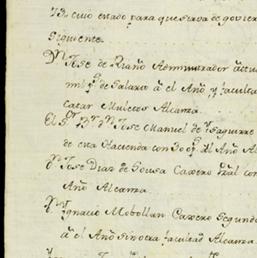 73 cuio estado para que sirva de govier
siguiente.
Dn Jose de Riaño Administrador actua
mil ps de Salario a el Año, y faculta
catar Muletos Alcanza.
El Sr Dn Jose Manuel de Yzaguirre
de esta Hacienda con 300 ps al Año Al
Dn Jose Dias de Sousa Caxero con
Año Alcanza
Dn Ignacio Mobollan Caxero Segundo
a el Año sin otra facultad Alcanza